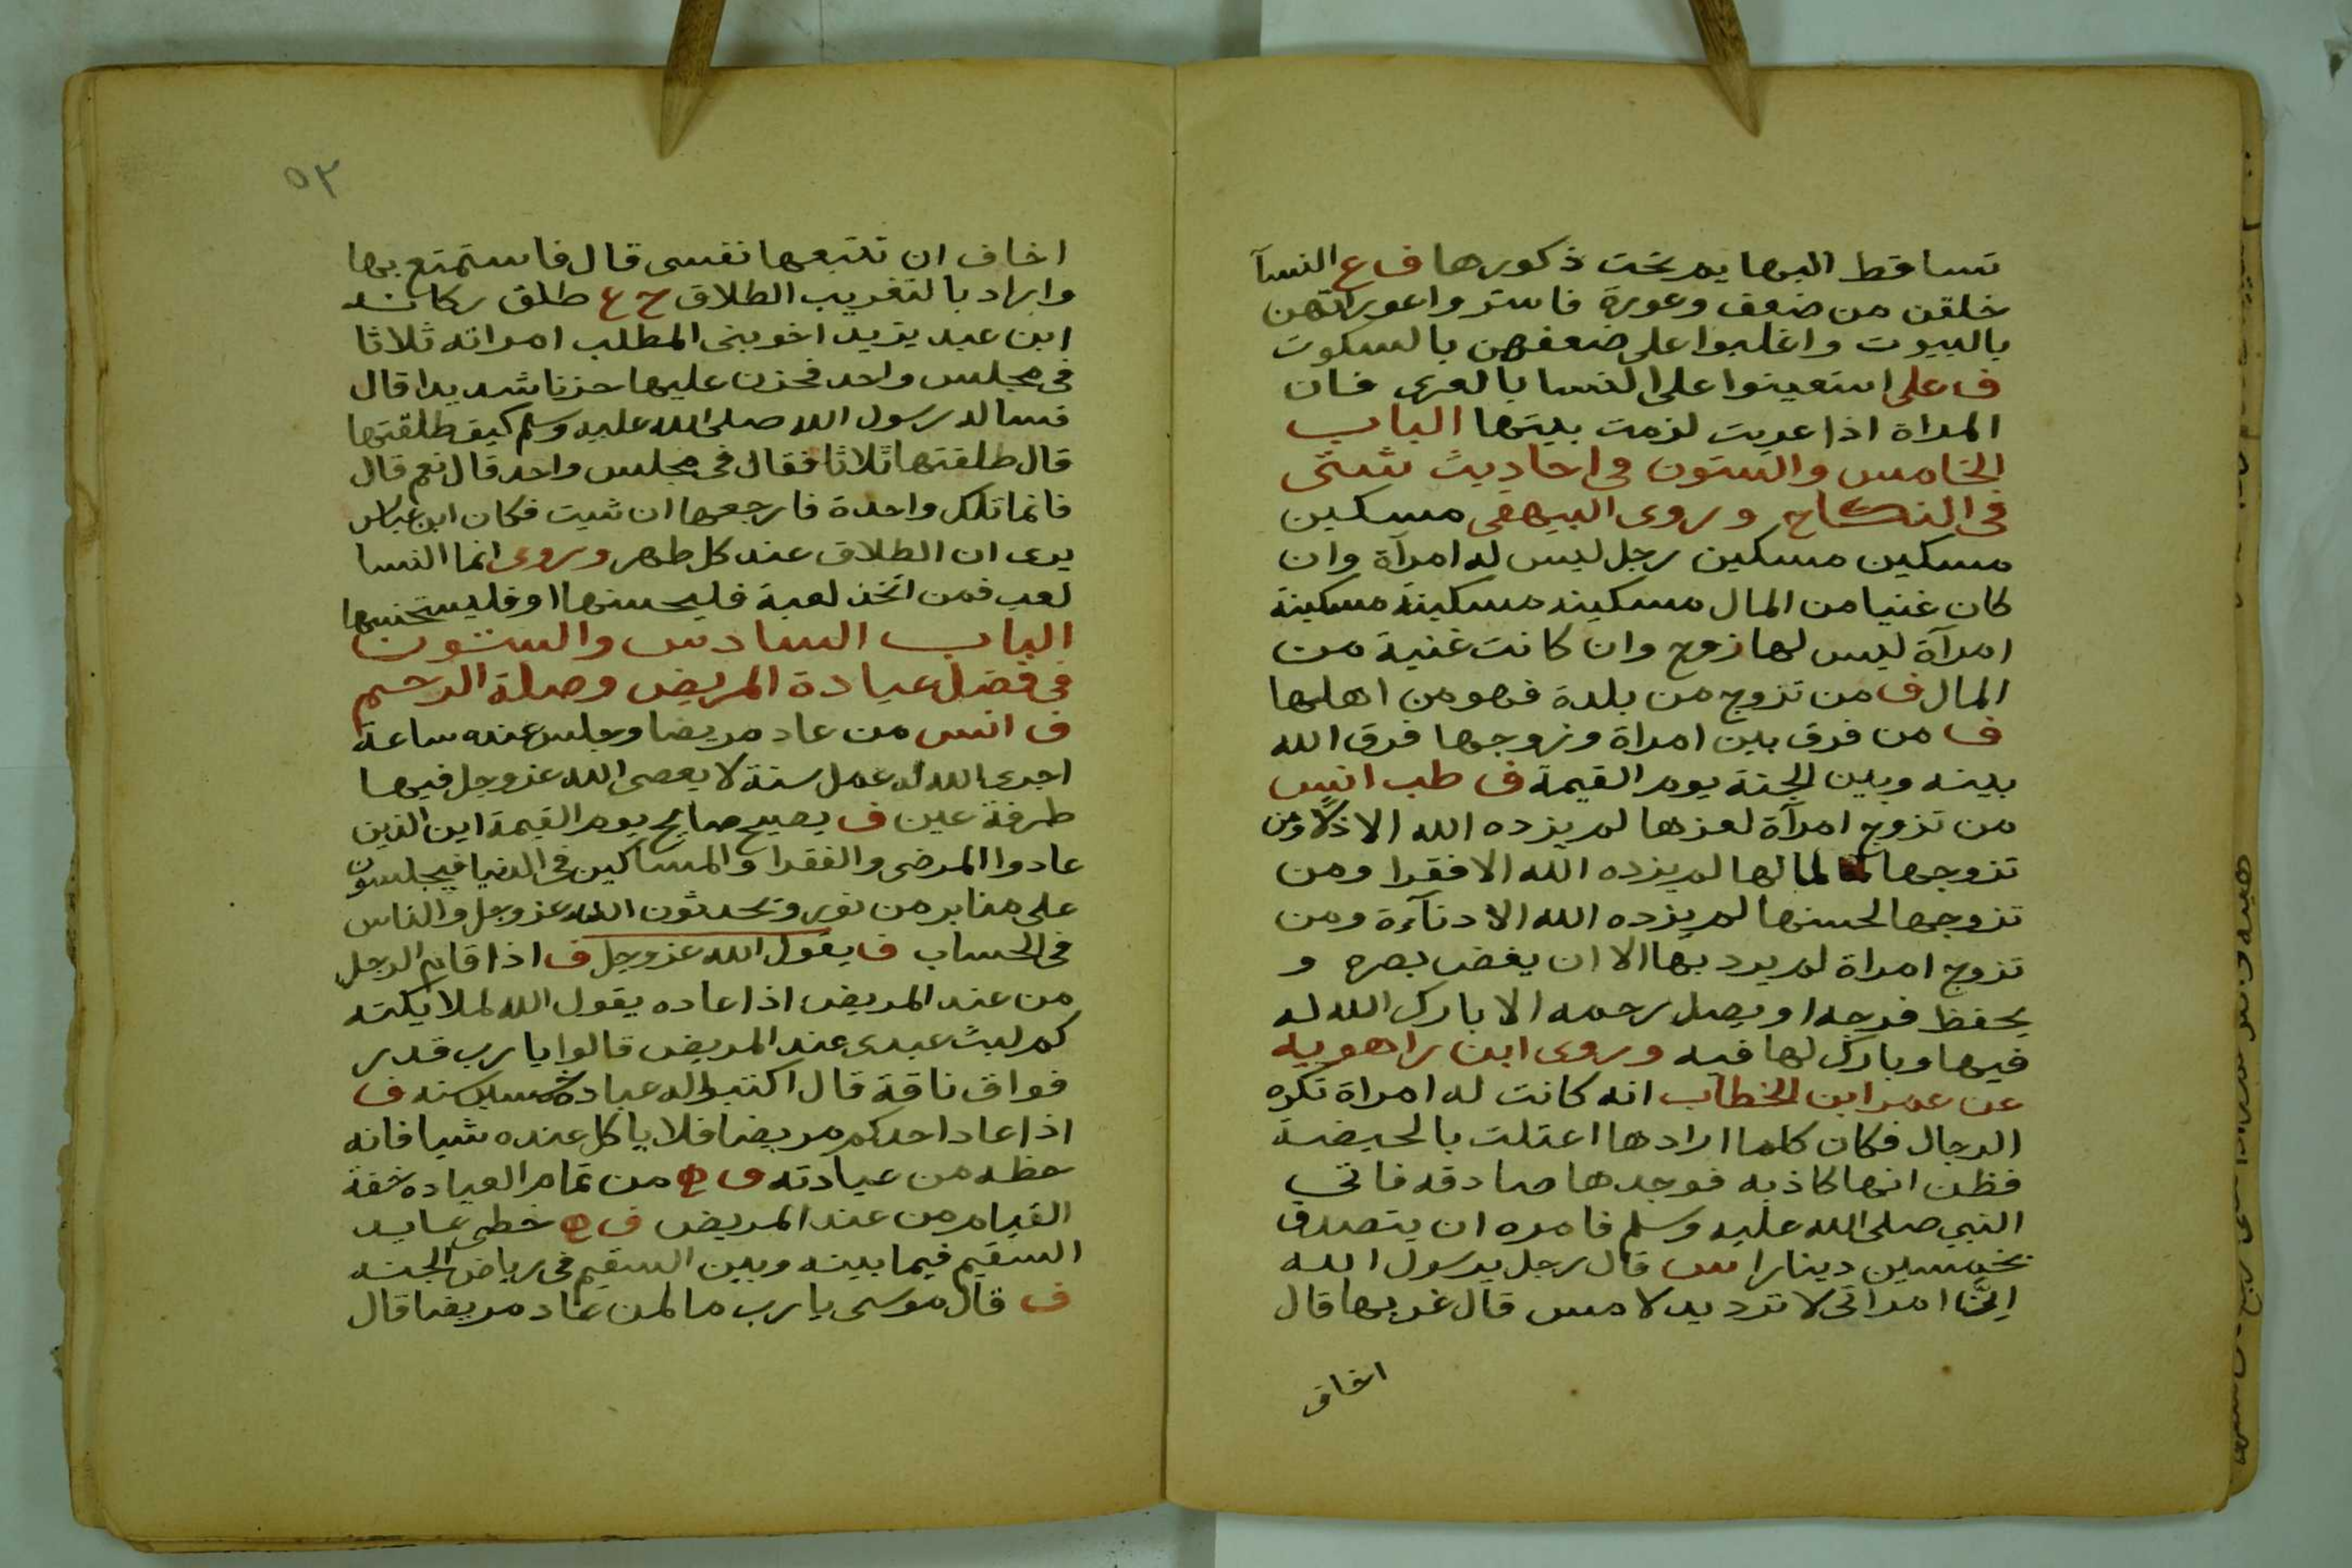 تساقط البهايم تحت ذكورها ف ع النسآ
خلقن من ضعف وعورة فاستروا عوراتهن
بالبيوت واغلبوا على ضعفهن بالسكوت
ف على استعينوا على النسا بالعرى فان
المراة اذا عريت لزمت بيتها الباب
الخامس والستون فى احاديث شتى
فى النكاح وروى البيهقى مسكين
مسكين مسكين رجل ليس له امرآة وان
كان غنيا من المال مسكينه مسكينة مسكينة
امرآة ليس لها زوج وان كانت غنية من
المال ف من تزوج من بلدة فهو من اهلها
ف من فرق بين امراة وزوجها فرق الله
بينه وبين الجنة يوم القيمة ف طب انس
من تزوج امرآة لعزها لم يزده الله الا ذلًا ومن
تزوجها لمالها لم يزده الله الا فقرا ومن
تزوجها لحسنها لم يزده الله الا دنآءة ومن
تزوج امراة لم يرد بها الا ان يغض بصره و
يحفظ فرجه او يصل رحمه الا بارك الله له
فيها وبارك لها فيه وروى ابن راهويه
عن عمر ابن الخطاب انه كانت له امراة تكره
الرجال فكان كلما ارادها اعتلت بالحيضة
فظن انها كاذبه فوجدها صادقه فاتى
النبي صلى الله عليه وسلم فامره ان يتصدق
بخمسين دينارا س قال رجل يرسول الله
اِنَّ امراتى لا ترد يد لامس قال غربها قال
اخاف
٥٣
اخاف ان تتبعها نفسى قال فاستمتع بها
واراد بالتغريب الطلاق ح ع طلق ركانه
ابن عبد يزيد اخو بنى المطلب امراته ثلاثا
فى مجلس واحد فحزن عليها حزنا شديدا قال
فساله رسول الله صلى الله عليه وسلم كيف طلقتها
قال طلقتها ثلاثا فقال فى مجلس واحد قال نعم قال
فانما تلك واحدة فارجعها ان شيت فكان ابن عباس
يرى ان الطلاق عند كل طهر وروى انما النسا
لعب فمن اتخذ لعبة فليحسنها او فليستحسنها
الباب السادس والستون
فى فضل عيادة المريض وصلة الرحم
ف انس من عاد مريضا وجلس عنده ساعة
اجرى الله له عمل سنة لا يعصى الله عز وجل فيها
طرفة عين ف يصيح صايح يوم القيمة اين الذين
عادوا المرضى والفقرا والمساكين فى الدنيا فيجلسون
على منابر من نور ويحدثون الله عز وجل والناس
فى الحساب ف يقول الله عز وجل ف اذا قام الرجل
من عند المريض اذا عاده يقول الله لملايكته
كم لبث عبدى عند المريض قالوا يا رب قدر
فواق ناقة قال اكتبوا له عبادة سنه ف
اذا عاد احدكم مريضا فلا ياكل عنده شيا فانه
حظه من عيادته ف من تمام العياده خفة
القيام من عند المريض ف خطى عايد
السقيم فيما بينه وبين السقيم فى رياض الجنه
ف قال موسى يا رب ما لمن عاد مريضا قال